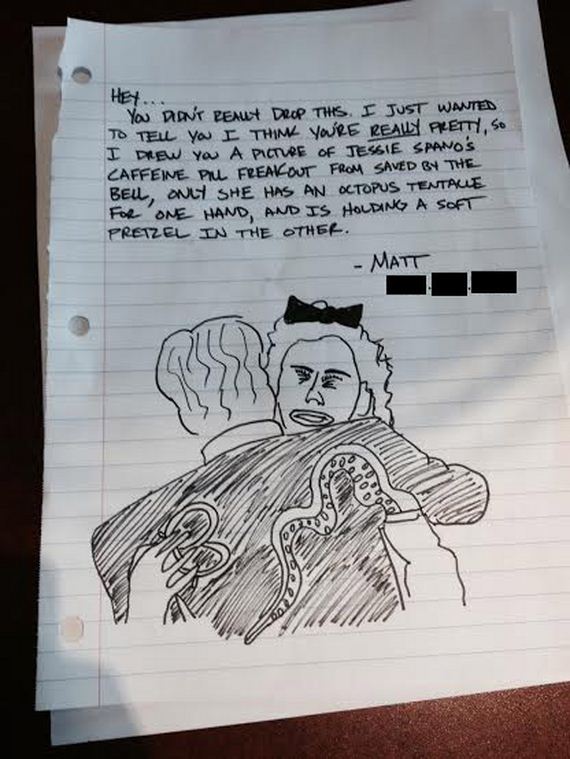 HEY...
YOU DIDN'T REALLY DROP THIS. I JUST WANTED
TO TELL YOU I THINK YOU'RE REALLY PRETTY, SO
I DREW YOU A PICTURE OF JESSIE SPANO'S
CAFFEINE PILL FREAKOUT FROM SAVED BY THE
BELL, ONLY SHE HAS AN OCTOPUS TENTACLE
FOR ONE HAND, AND IS HOLDING A SOFT
PRETZEL IN THE OTHER.
- MATT